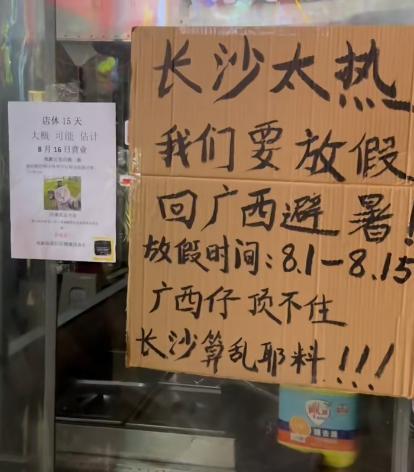 店休 15 天
大概 可能 估计
8 月 16 日营业
长沙太热
我们要放假
回广西避暑!
放假时间:8.1-8.15
广西仔顶不住
长沙算乱耶料!!!